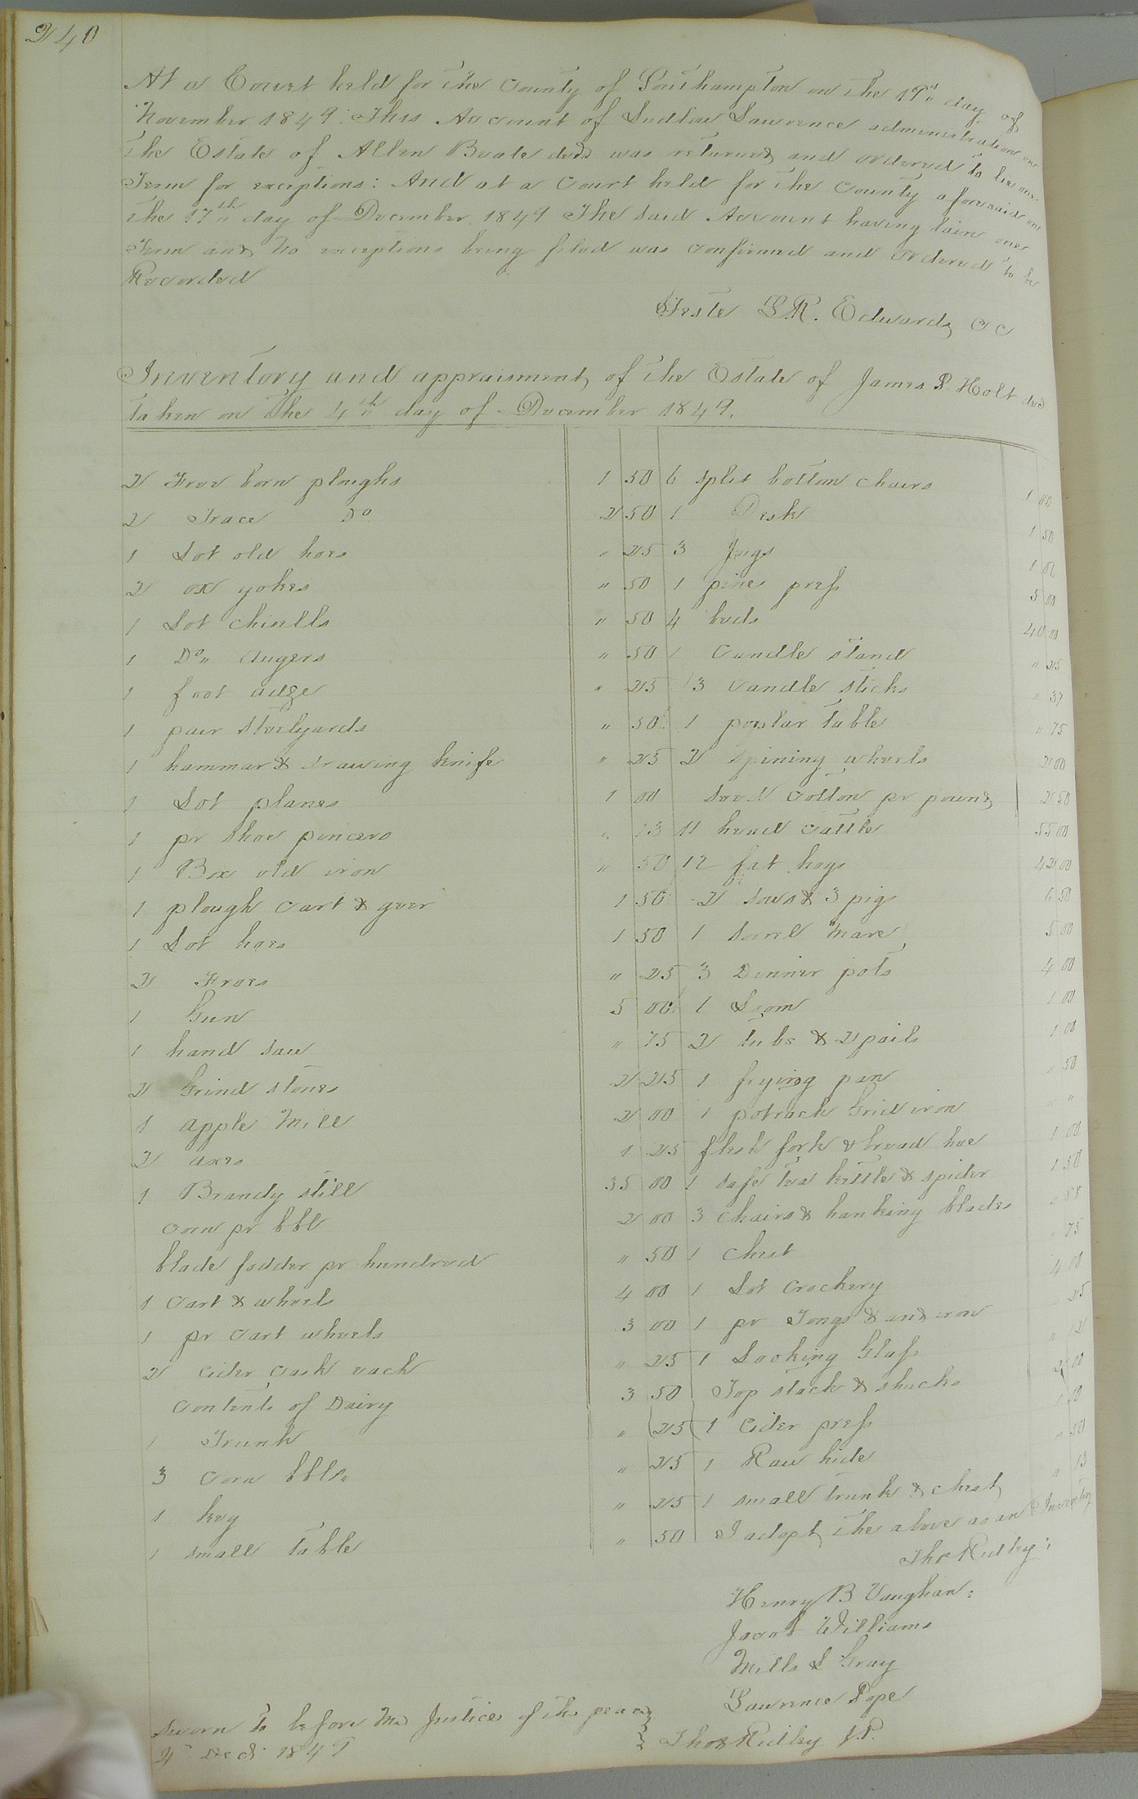 240
At a Court held for the County of Southampton on the 19th day of
November 1849. This Account of Ludlow Lawrence administration on
the Estate of Allen Beale decd was returned and ordered to lie one
Term for exceptions: And at a Court held for the County aforesaid on
the 17th day of December 1849 The said Account having lain one
Term and no exceptions being filed was confirmed and ordered to be
Recorded
Teste L.R. Edwards CC
Inventory and appraisment of the Estate of James P Holt decd
taken on the 4th day of December 1849.
2 Free born ploughs 1 50
2 Trace Do 2 50
1 Lot old hoes " 25
2 ox yokes " 50
1 Lot chisells " 50
1 Do" Augers " 50
1 foot adze " 25
1 pair steelyards " 50
1 hammar & drawing knife " 25
1 Lot planes 1 00
1 pr shoe pincers " 13
1 Box old iron " 50
1 plough cart & gear 1 50
1 Lot hoes 1 50
2 Froes " 25
1 Gun 5 00
1 hand saw " 75
2 Grind stones 2 25
1 apple Mill 2 00
2 axes 1 25
1 Brandy still 35 00
Corn pr bbl 2 00
blade fodder pr hundred " 50
1 Cart & wheels 4 00
1 pr cart wheels 3 00
2 Cider Cask each " 25
Contents of Dairy 3 50
1 Trunk " 25
3 Corn bbls. " 25
1 keg " 25
1 small table " 50
6 split bottom chairs 1 00
1 Desk 1 50
3 Jugs 1 00
1 pine press 5 00
4 beds 40 00
1 Candle stand " 25
3 candle sticks " 37
1 poplar table " 75
2 spining wheels 2 00
Seed Cotton pr pound 2 50
11 head cattle 55 00
12 fat hogs 42 00
2 sows & 3 pigs 6 50
1 sorrel mare 5 00
3 Dinner pots 4 00
1 Loom 1 00
2 tubs & 2 pails 1 00
1 frying pan " 50
1 potrack Grid iron " "
flesh fork & broad hoe 1 00
1 safe tea kittle & spider 1 50
3 chairs & hanking blades " 88
1 Chest " 75
1 Lot Crockery 4 00
1 pr Tongs & andiron " 25
1 Looking Glass " 12
Top stack & shucks 2 00
1 Cider press 1 00
1 Raw hide " 50
1 small trunk & chest " 13
I adopt the above as an Inventory
Thos Ridley:
Henry B Vaughan:
Jacob Williams
Mills L Gray
Lawrence Pope
Sworn to before me Justice of the peace
4th Decr 1849
Thos Ridley J.P.